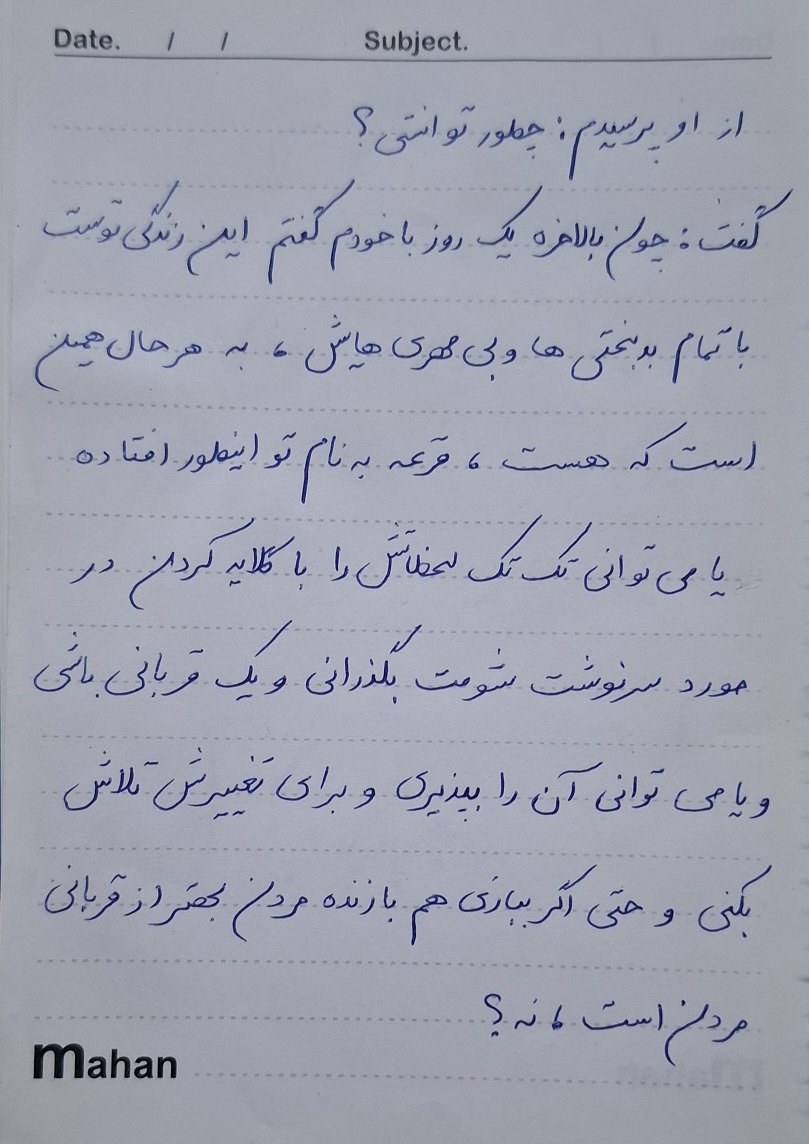 Date. / / Subject.
از او پرسیدم : چطور توانستی ؟
گفت : چون بالاخره یک روز با خودم گفتم این زندگی توست
با تمام بدبختی ها و بی مهری هایش ، به هر حال همین
است که هست ، قرعه به نام تو اینطور افتاده
یا می توانی تک تک لحظاتش را با گلایه کردن در
مورد سرنوشت شومت بگذرانی و یک قربانی باشی
و یا می توانی آن را بپذیری و برای تغییرش تلاش
بکنی و حتی اگر ببازی هم بازنده مردن بهتر از قربانی
مردن است ، نه ؟
mahan